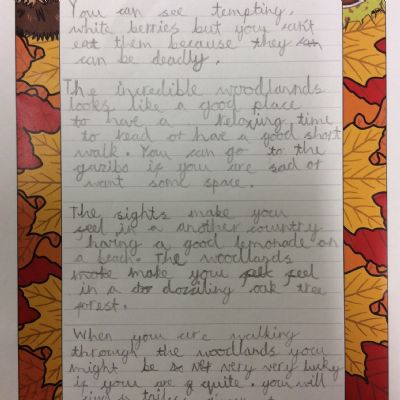 You can see tempting,
white berries but your can't
eat them because they can
can be deadly.
The incredible woodlannds
looks like a good place
to have a relaxing time
to read or have a good short
walk. You can go to the
gazibo if your are sad or
want some space.
The sights make your
feel in a another country
having a good lemonade on
a beach. The woodlands
make make you felt feel
in a do dozziling oak tree
forest.
When your are walking
through the woodlands your
might be very very lucky
if your are q quite. you will